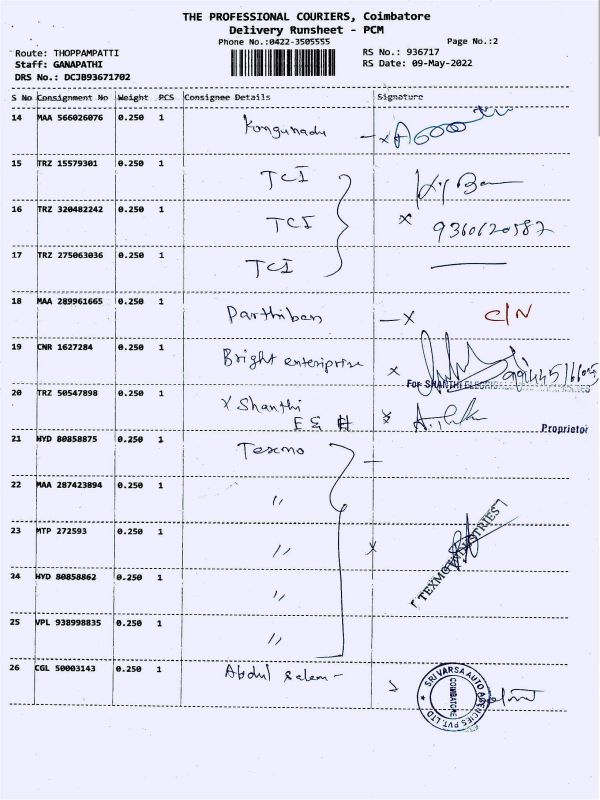 THE PROFESSIONAL COURIERS, Coimbatore
Delivery Runsheet - PCM
Phone No.:0422-3505555 Page No.:2
Route: THOPPAMPATTI RS No.: 936717
Staff: GANAPATHI RS Date: 09-May-2022
DRS No.: DCJB93671702
S No Consignment No Weight PCS Consignee Details Signature
14 MAA 566026076 0.250 1 Kongunadu - x
15 TRZ 15579301 0.250 1 TCI
16 TRZ 320482242 0.250 1 TCI x 9360620587
17 TRZ 275063036 0.250 1 TCI
18 MAA 289961665 0.250 1 Parthiban - x C/N
19 CNR 1627284 0.250 1 Bright enterprise x
For SHANTHI
20 TRZ 50547898 0.250 1 x Shanthi x
E & H Proprietor
21 HYD 80858875 0.250 1 Texmo -
22 MAA 287423894 0.250 1 "
23 MTP 272593 0.250 1 " x
TEXMO INDUSTRIES
24 HYD 80858862 0.250 1 "
25 VPL 938998835 0.250 1 "
26 CGL 50003143 0.250 1 Abdul Salam -
SRI VARSA AUTO AGENCIES PVT. LTD
COIMBATORE